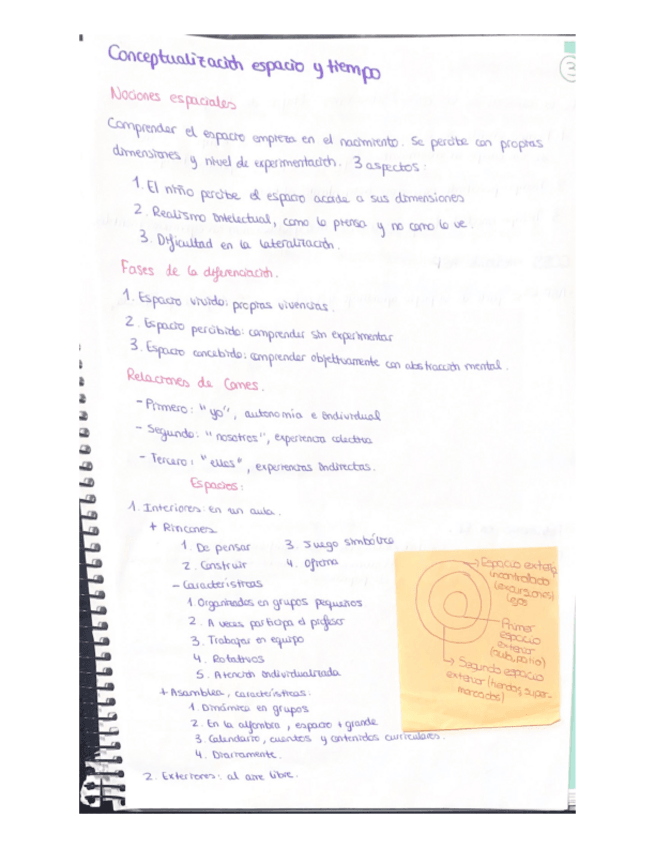 Conceptualización espacio y tiempo
3
Nociones espaciales
Comprender el espacio empieza en el nacimiento. Se percibe con propias
dimensiones y nivel de experimentación. 3 aspectos:
1. El niño percibe el espacio acorde a sus dimensiones
2. Realismo intelectual, como lo piensa y no como lo ve.
3. Dificultad en la lateralización.
Fases de la diferenciación.
1. Espacio vivido: propias vivencias.
2. Espacio percibido: comprender sin experimentar
3. Espacio concebido: comprender objetivamente con abstracción mental.
Relaciones de Comes.
- Primero: "yo", autonomía e individual
- Segundo: "nosotros", experiencia colectiva
- Tercero: "ellos", experiencias indirectas.
Espacios:
1. Interiores: en un aula.
+ Rincones
1. De pensar
2. Construir
3. Juego simbólico
4. Oficina
- Características
1. Organizados en grupos pequeños
2. A veces participa el profesor
3. Trabajar en equipo
4. Rotativos
5. Atención individualizada
+ Asamblea, características:
1. Dinámica en grupos
2. En la alfombra, espacio + grande
3. Calendario, cuentos y contenidos curriculares.
4. Diariamente.
2. Exteriores: al aire libre.
Espacio exterior
incontrolado
(excursiones)
lejos
Primer
espacio
exterior
(aula, patio)
Segundo espacio
exterior (tiendas, super-
mercados)